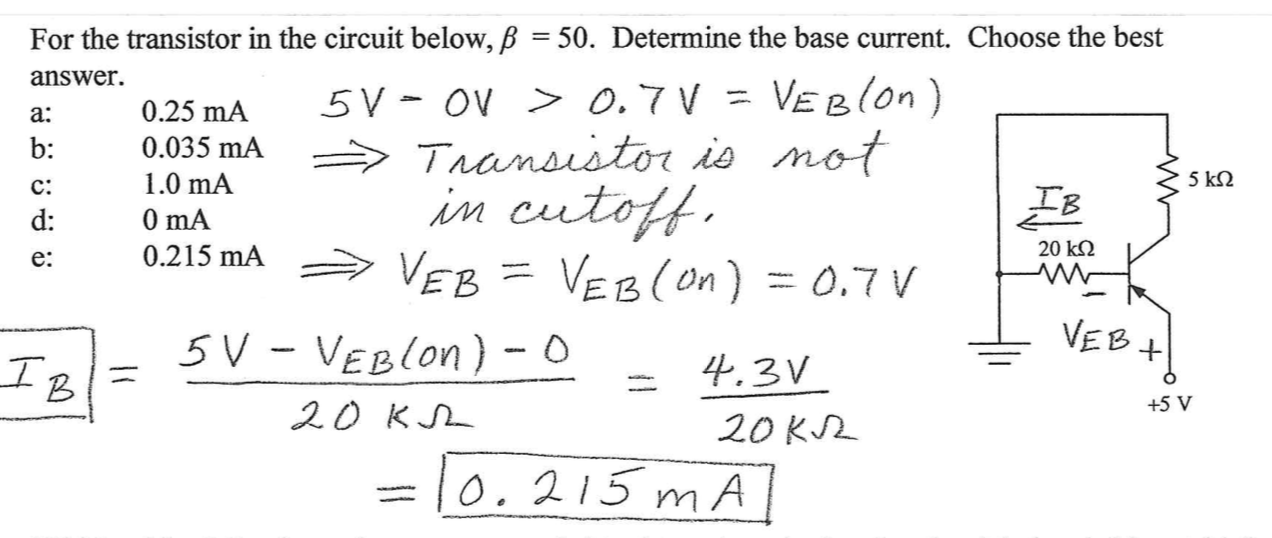 For the transistor in the circuit below, β = 50. Determine the base current. Choose the best
answer.
a: 0.25 mA
b: 0.035 mA
c: 1.0 mA
d: 0 mA
e: 0.215 mA
5V - 0V > 0.7V = VEB(on)
⇒ Transistor is not
in cutoff.
⇒ VEB = VEB(on) = 0.7V
IB = (5V - VEB(on) - 0) / 20 KΩ = 4.3V / 20KΩ
= 0.215 mA
5 kΩ
IB
20 kΩ
- VEB +
+5 V